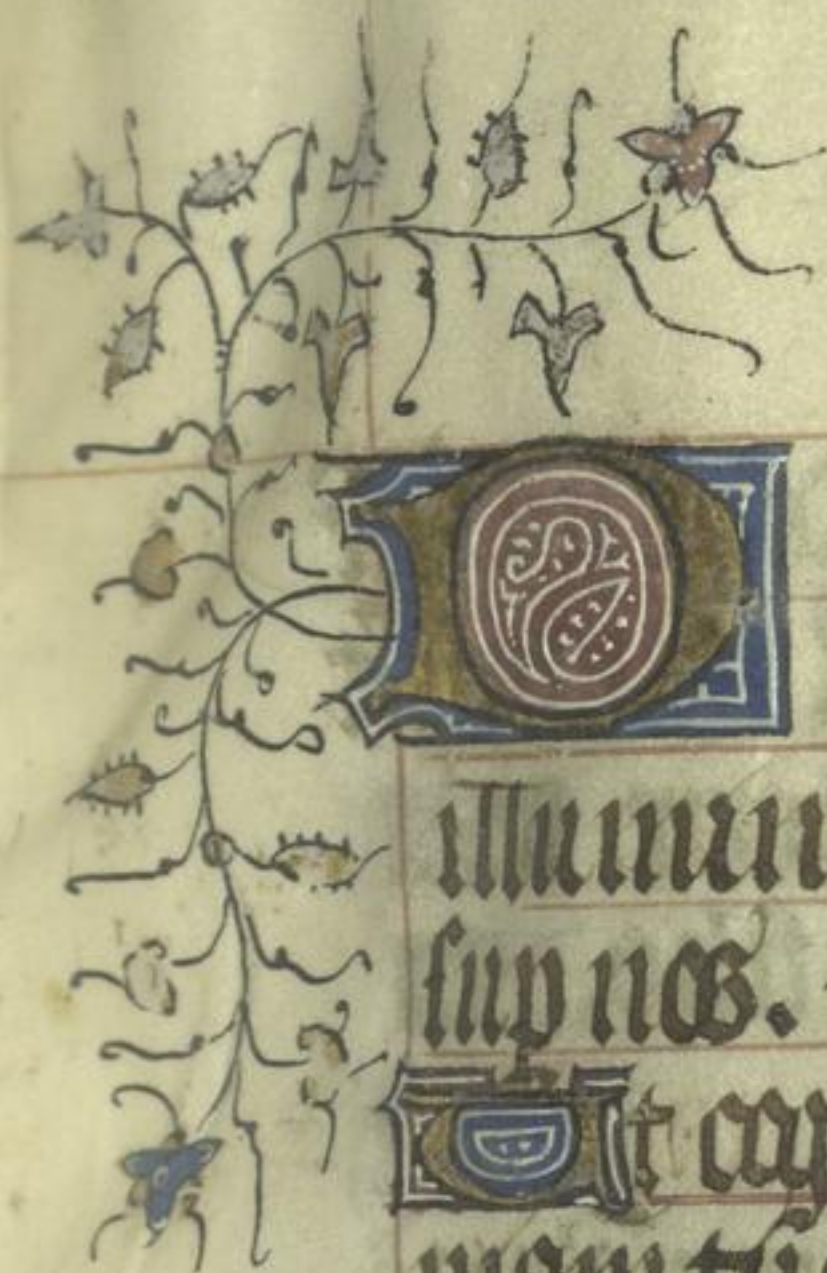 D
illumin
sup nos.
Ut cog